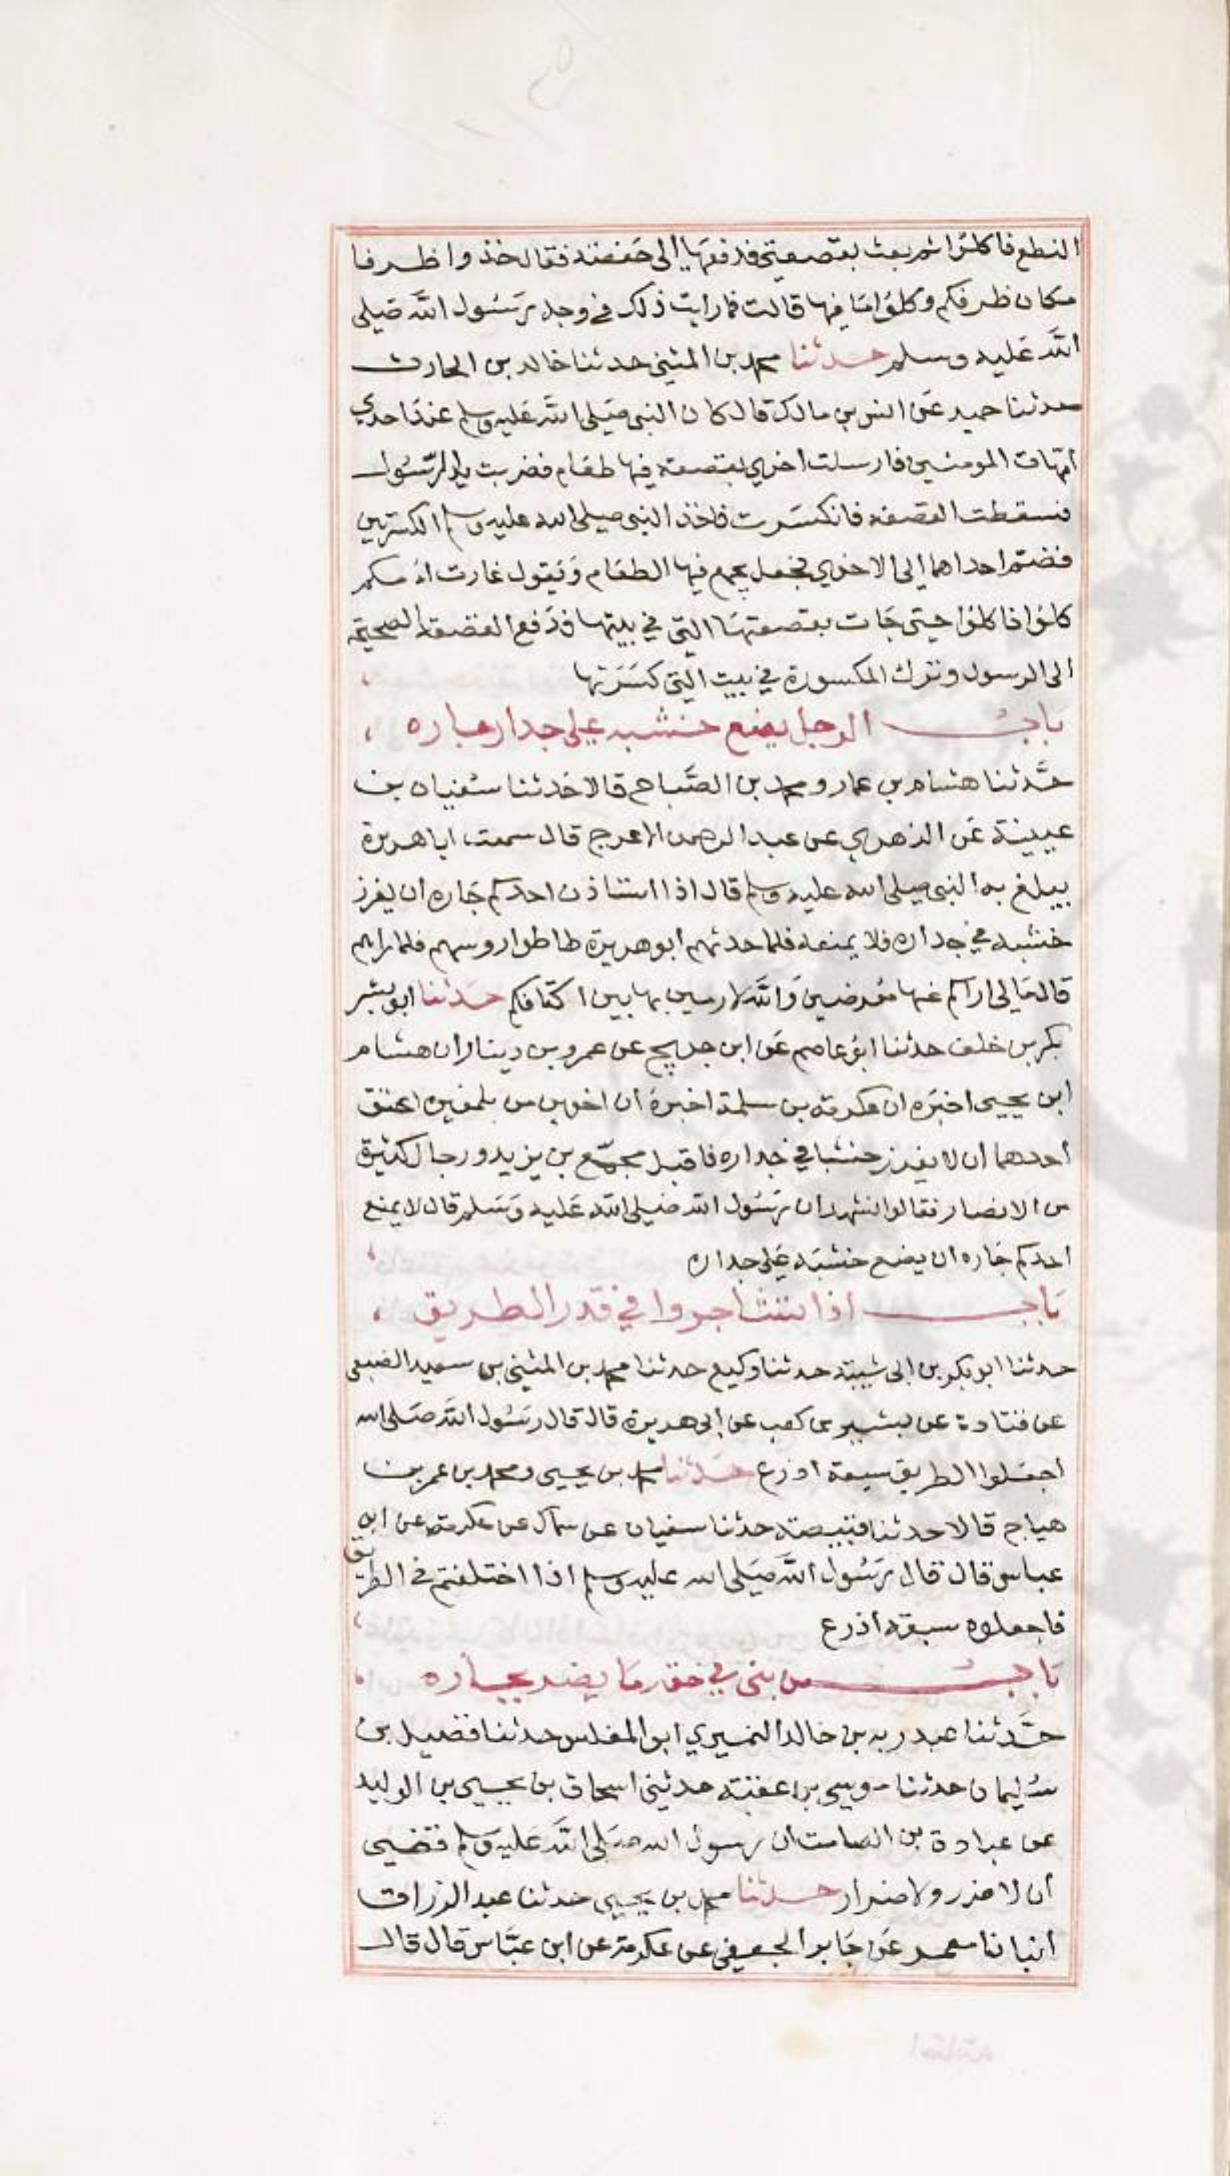 النطع فاكلوا ثم بعث بقصعتي فدفعها الى حفصة فقال خذوا ظرفا
مكان ظرفكم وكلوا ما فيها قالت فما رايت ذلك في وجه رسول الله صلى
الله عليه وسلم حدثنا محمد بن المثنى حدثنا خالد بن الحارث
حدثنا حميد عن انس بن مالك قال كان النبي صلى الله عليه وسلم عند احدي
امهات المومنين فارسلت اخري بقصعة فيها طعام فضربت يد الرسول
فسقطت القصعة فانكسرت فاخذ النبي صلى الله عليه وسلم الكسرتين
فضم احداهما الى الاخري فجعل يجمع فيها الطعام ويقول غارت امكم
كلوا فاكلوا حتى جات بقصعتها التي في بيتها فدفع القصعة الصحيحة
الى الرسول وترك المكسورة في بيت التي كسرتها
باب الرجل يضع خشبه على جدار جاره
حدثنا هشام بن عمار ومحمد بن الصباح قالا حدثنا سفيان بن
عيينة عن الزهري عن عبد الرحمن الاعرج قال سمعت ابا هريرة
يبلغ به النبي صلى الله عليه وسلم قال اذا استاذن احدكم جاره ان يغرز
خشبه في جداره فلا يمنعه فلما حدثهم ابو هريرة طاطوا روسهم فلما راهم
قال مالي اراكم عنها معرضين والله لارمين بها بين اكتافكم حدثنا ابو بشر
بكر بن خلف حدثنا ابو عاصم عن ابن جريج عن عمرو بن دينار ان هشام
ابن يحيى اخبره ان عكرمة بن سلمة اخبره ان اخوين من بلمغيره اعتق
احدهما ان لا يغرز خشبا في جداره فاقبل مجمع بن يزيد ورجال كثيرة
من الانصار فقالوا نشهد ان رسول الله صلى الله عليه وسلم قال لا يمنع
احدكم جاره ان يضع خشبه على جداره
باب اذا تشاجروا في قدر الطريق
حدثنا ابو بكر بن ابي شيبة حدثنا وكيع حدثنا محمد بن المثنى بن سعيد الضبعي
عن قتادة عن بشير بن كعب عن ابي هريرة قال قال رسول الله صلى الله
اجعلوا الطريق سبعة اذرع حدثنا محمد بن يحيى ومحمد بن عمر بن
هياج قالا حدثنا قبيصة حدثنا سفيان عن سماك عن عكرمة عن ابن
عباس قال قال رسول الله صلى الله عليه وسلم اذا اختلفتم في الطريق
فاجعلوه سبعة اذرع
باب من بنى في حقه ما يضر بجاره
حدثنا عبد ربه بن خالد النميري ابو المغلس حدثنا فضيل بن
سليمان حدثنا موسى بن عقبة حدثني اسحاق بن يحيى بن الوليد
عن عبادة بن الصامت ان رسول الله صلى الله عليه وسلم قضى
ان لا ضرر ولا ضرار حدثنا محمد بن يحيى حدثنا عبد الرزاق
انبانا معمر عن جابر الجعفي عن عكرمة عن ابن عباس قال قال